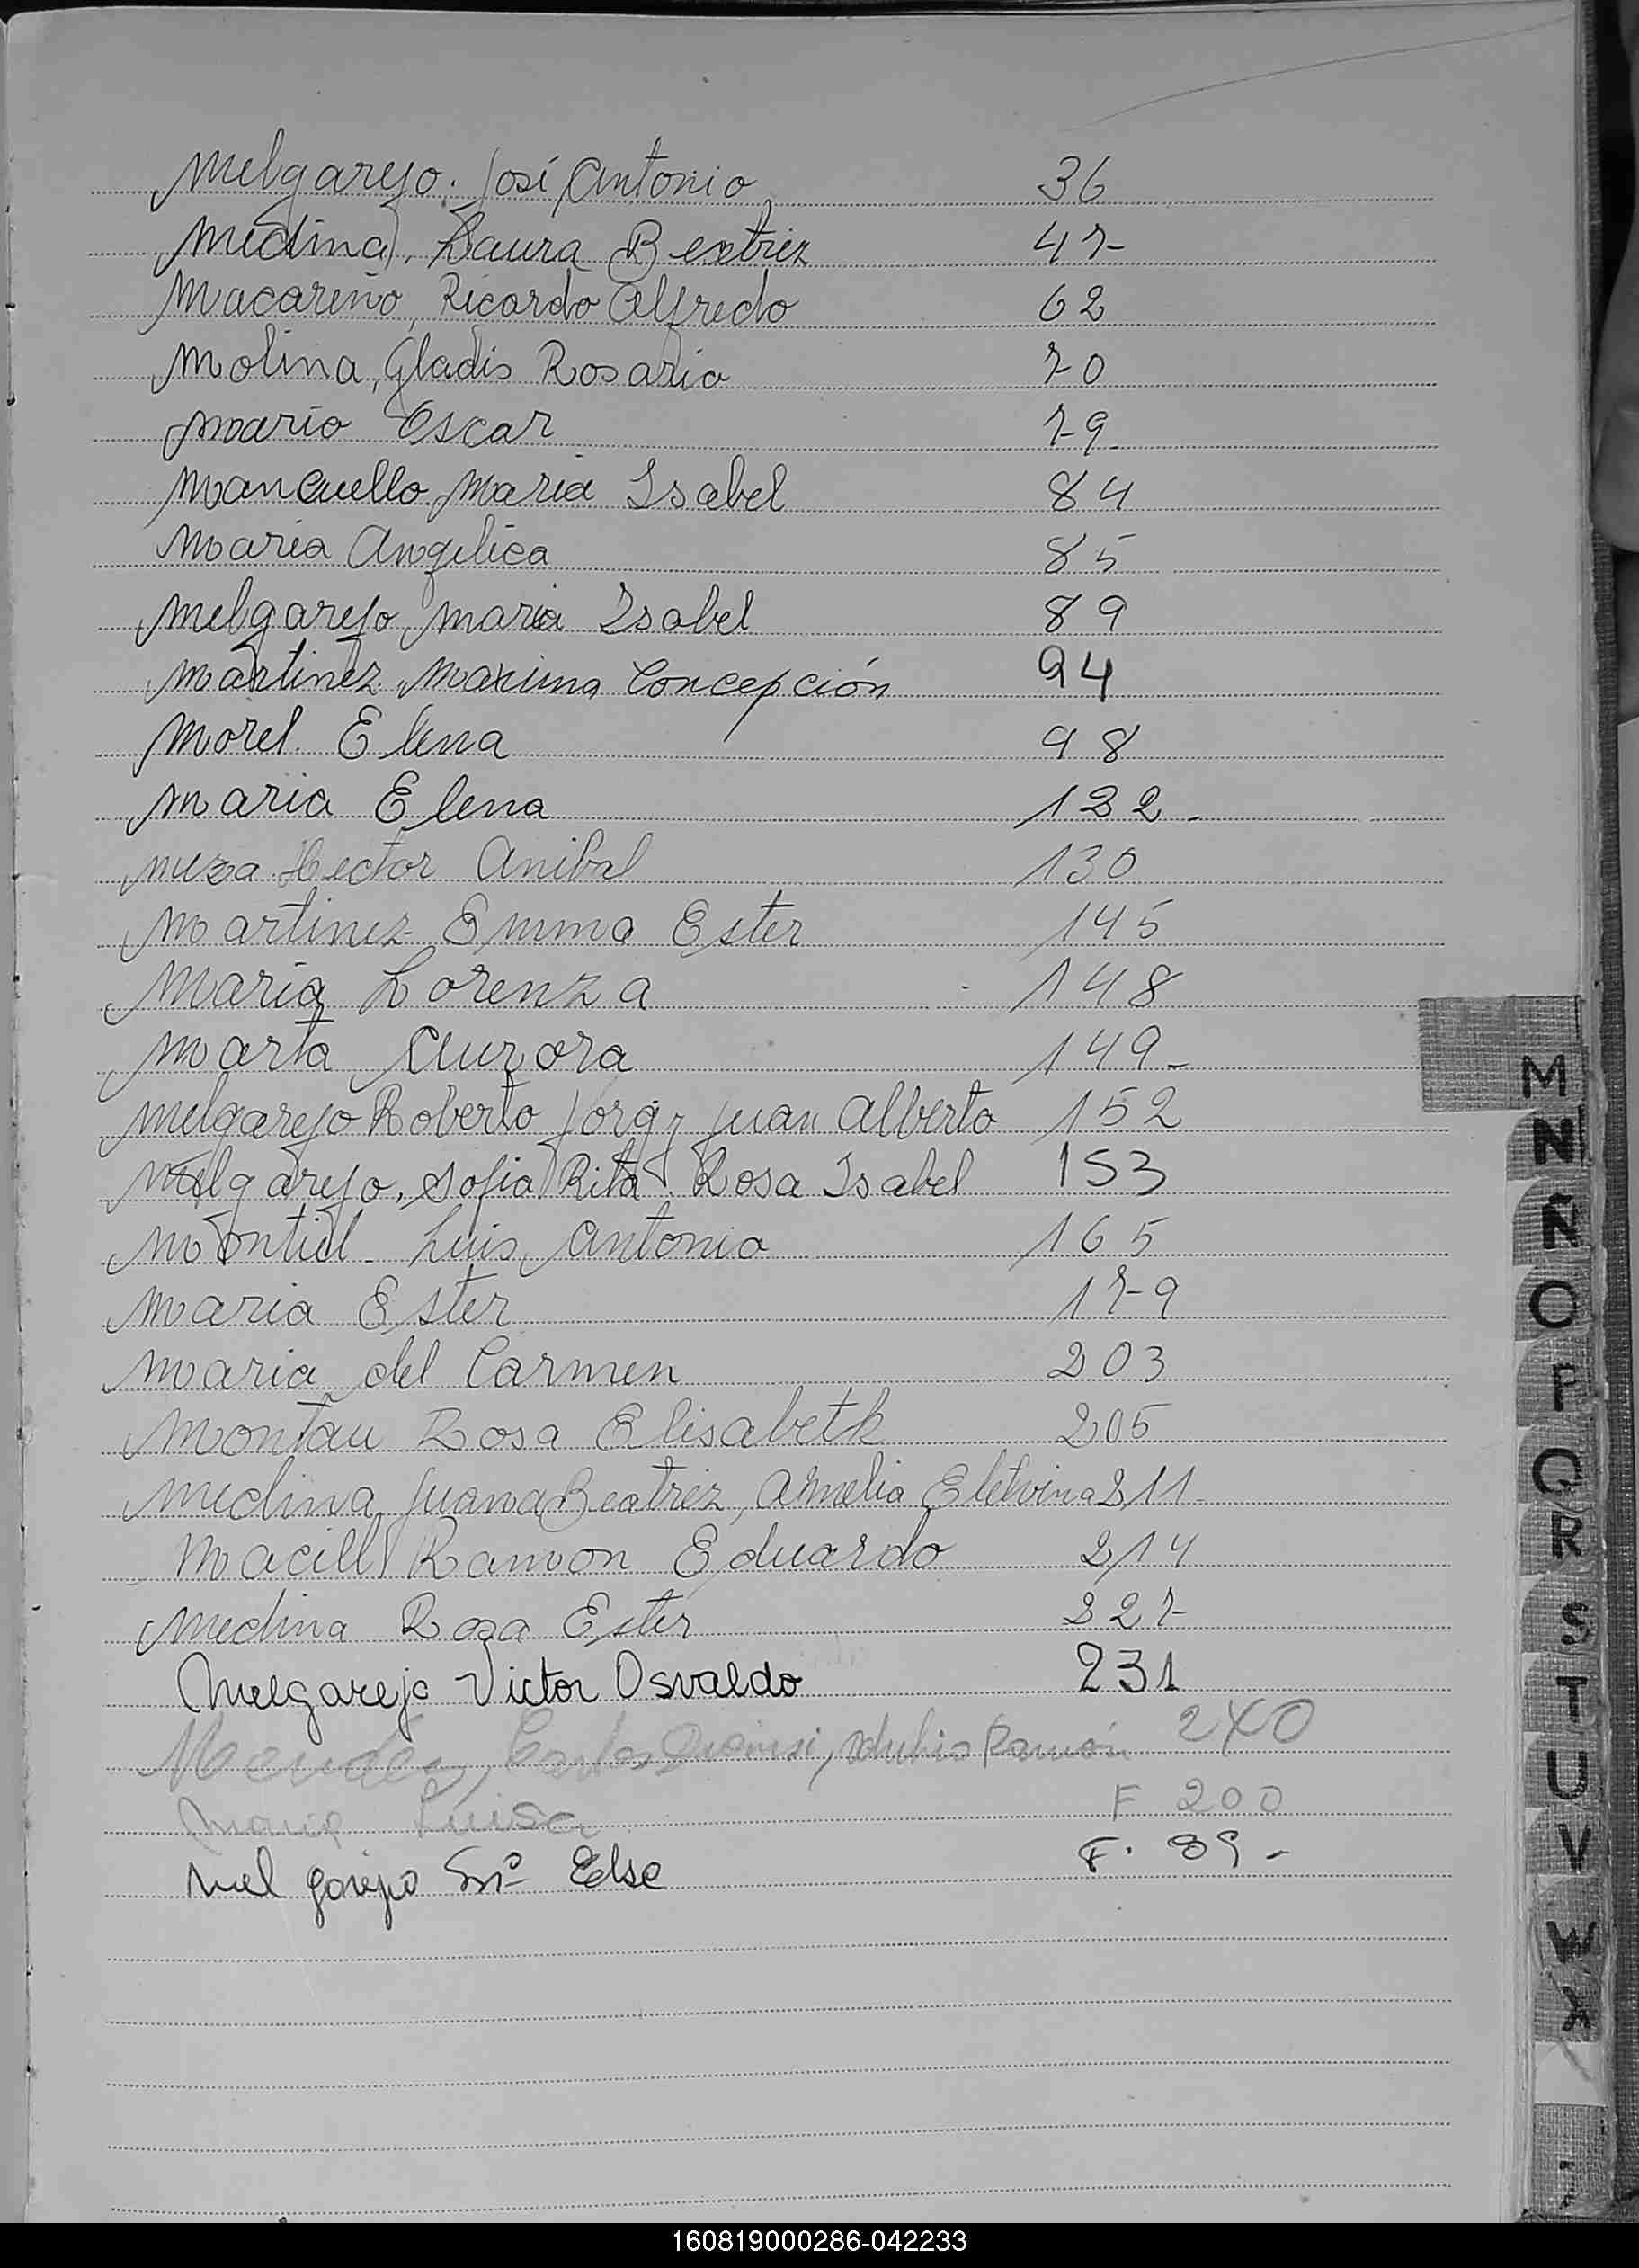 Melgarejo. José Antonio 36
Medina, Laura Beatriz 47
Macareño, Ricardo Alfredo 62
Molina, Gladis Rosario 70
Mario Oscar 79
Mancuello, Maria Isabel 84
Maria Angelica 85
Melgarejo, Maria Isabel 89
Martinez, Maxima Concepción 94
Morel Elena 98
Maria Elena 122
Meza Hector Anibal 130
Martinez Emma Ester 145
Maria Lorenza 148
Marta Aurora 149
Melgarejo Roberto Jorg y Juan Alberto 152
Melgarejo, Sofia Rita. Rosa Isabel 153
Montiel Luis Antonio 165
Maria Ester 179
Maria del Carmen 203
Montau Rosa Elisabeth 205
Medina Juana Beatriz, Amelia Eletvina 211
Maciel Ramon Eduardo 214
Medina Rosa Ester 227
Melgarejo Victor Osvaldo 231
Mendez, Carlos Ramón 240
Maria Luisa F 200
Melgarejo Elsa F. 89
M
N
Ñ
O
P
Q
R
S
T
U
V
W
X
160819000286-042233